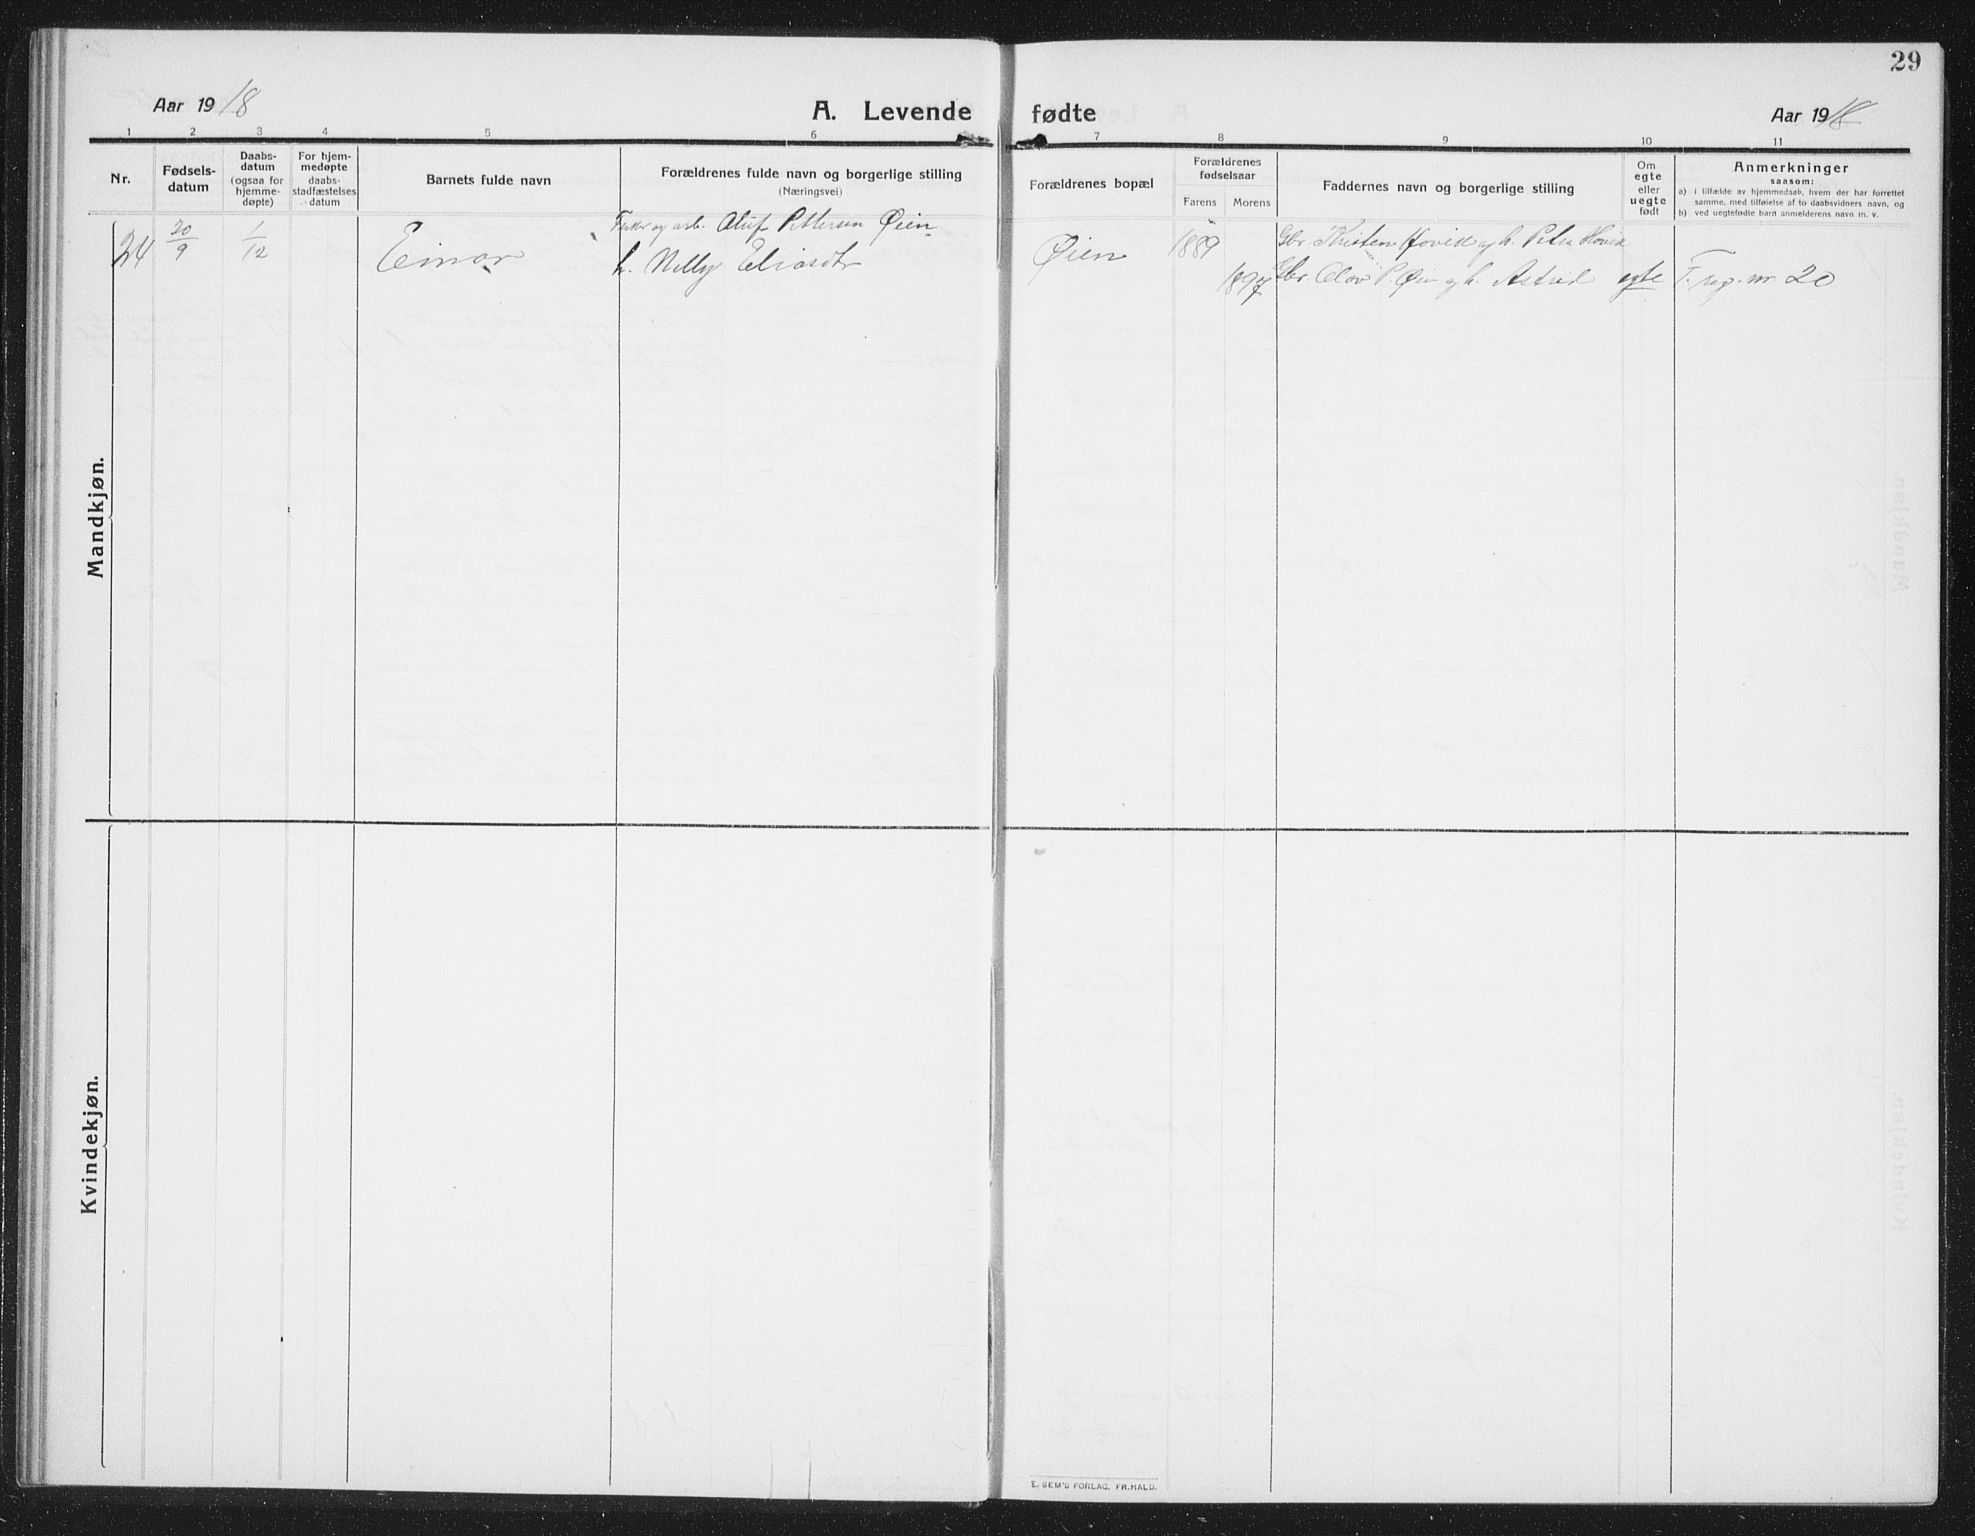 29
Aar 1918
A. Levende
fødte
Aar 1918
1 2 3 4 5 6 7 8 9 10 11
Nr.
Fødsels-
datum
Daabs-
datum
(ogsaa for
hjemme-
døpte)
For hjem-
medøpte
daabs-
stadfæstelses
datum
Barnets fulde navn
Forældrenes fulde navn og borgerlige stilling
(Næringsvei)
Forældrenes bopæl
Forældrenes
fødselsaar
Farens
Morens
Faddernes navn og borgerlige stilling
Om
egte
eller
uegte
født
Anmerkninger
saasom:
a) i tilfælde av hjemmedaab, hvem der har forrettet
samme, med tilføielse af to daabsvidners navn, og
b) ved uegtefødte barn anmelderens navn m. v.
Mandkjøn.
24
20/9
1/12
Einar
Fisker og arb. Oluf Pettersen Øien
h. Nelly Eliasdtr
Øien
1889
1897
Gbr. Kristen Hovik og h. Petra Hovik
Gbr. Olav P. Øien og h. Astrid
egte
F. reg. nr. 20
Kvindekjøn.
E. SEM'S FORLAG, FR.HALD.